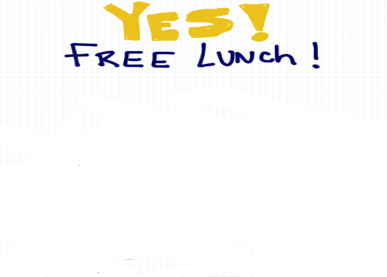 YES!
FREE LUNCH!